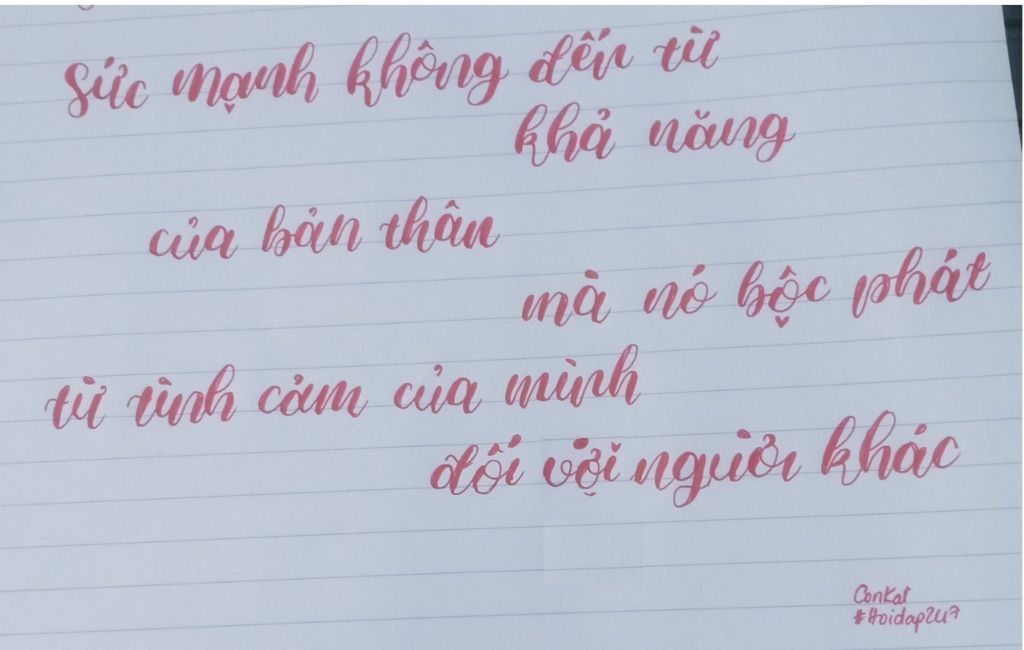 Sức mạnh không đến từ
khả năng
của bản thân
mà nó bộc phát
từ tình cảm của mình
đối với người khác
Conkat
#Hoidap247